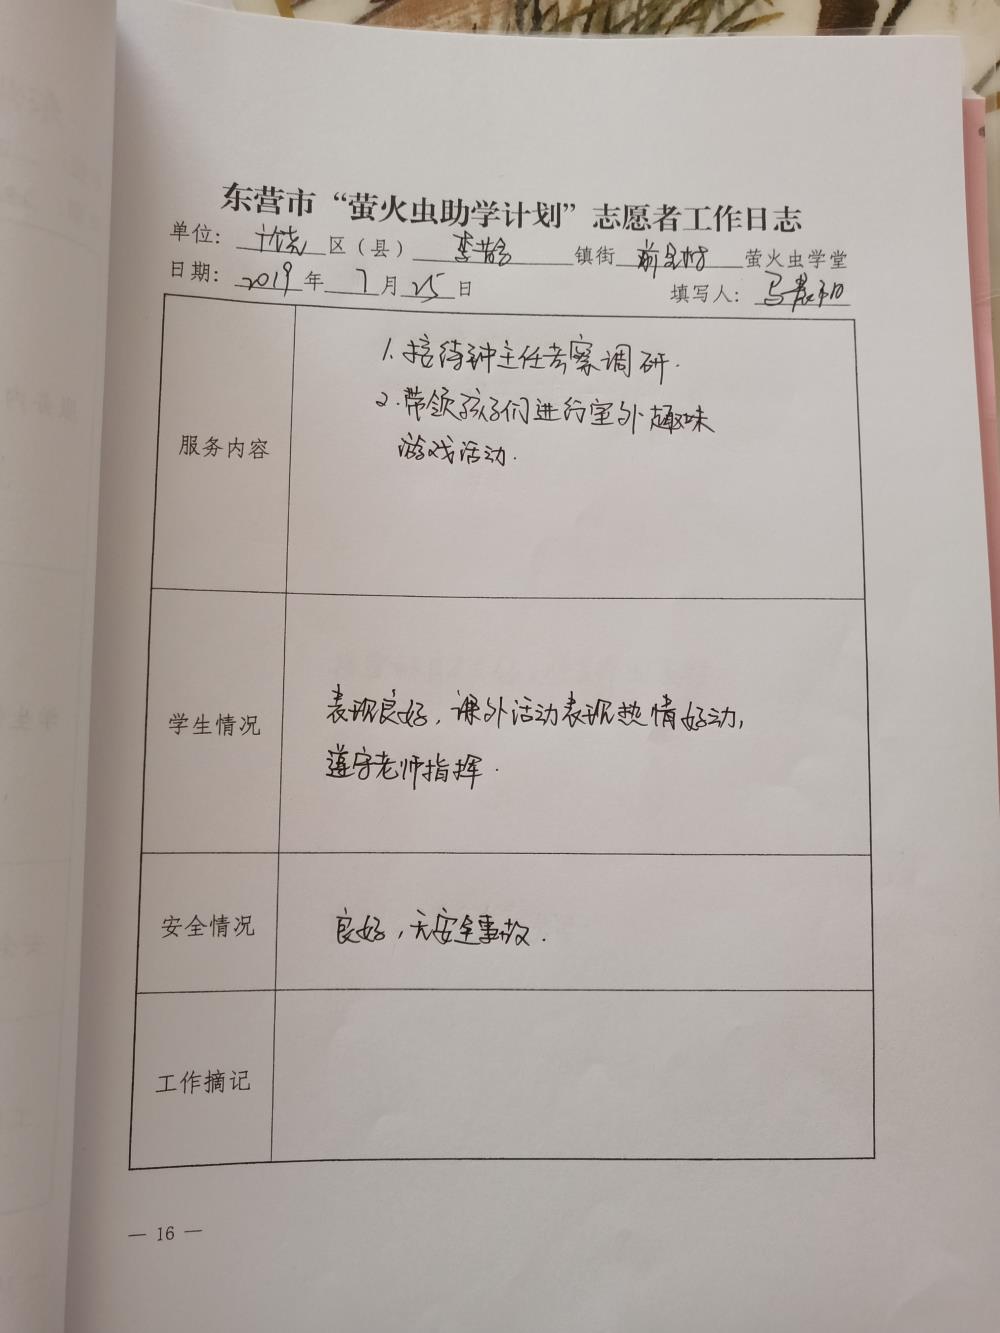 东营市“萤火虫助学计划”志愿者工作日志
单位：广饶区（县）李鹊镇街 萤火虫学堂
日期：2019年7月25日 填写人：马
服务内容
1.接待钟主任考察调研.
2.带领孩子们进行室外趣味
游戏活动.
学生情况
表现良好，课外活动表现热情好动，
遵守老师指挥.
安全情况
良好，无安全事故.
工作摘记
— 16 —